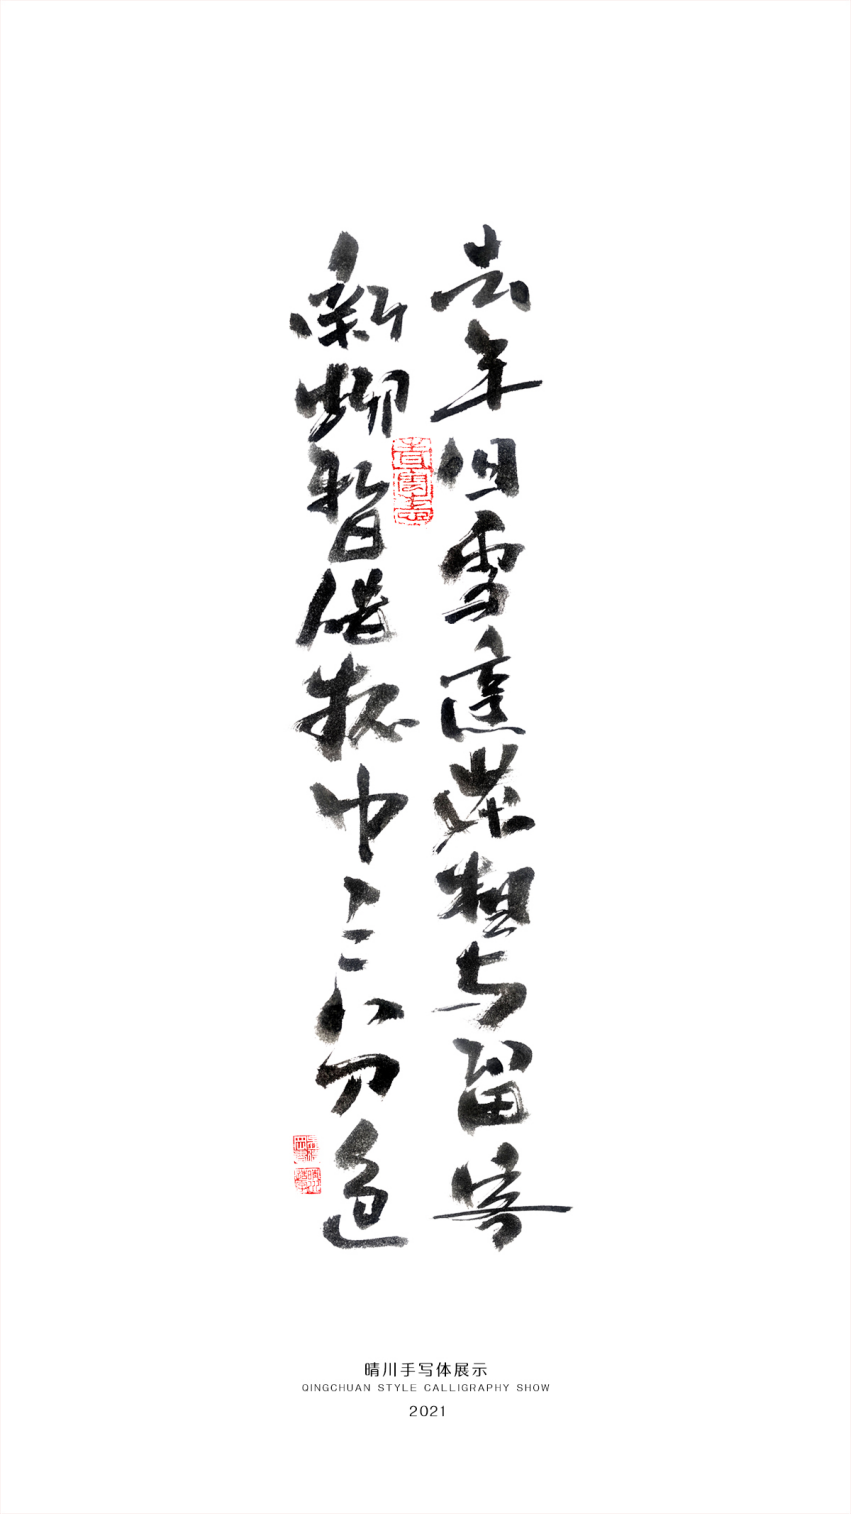 去年但雪与留寄
新柳暂借杯中三分色
晴川手写体展示
QINGCHUAN STYLE CALLIGRAPHY SHOW
2021